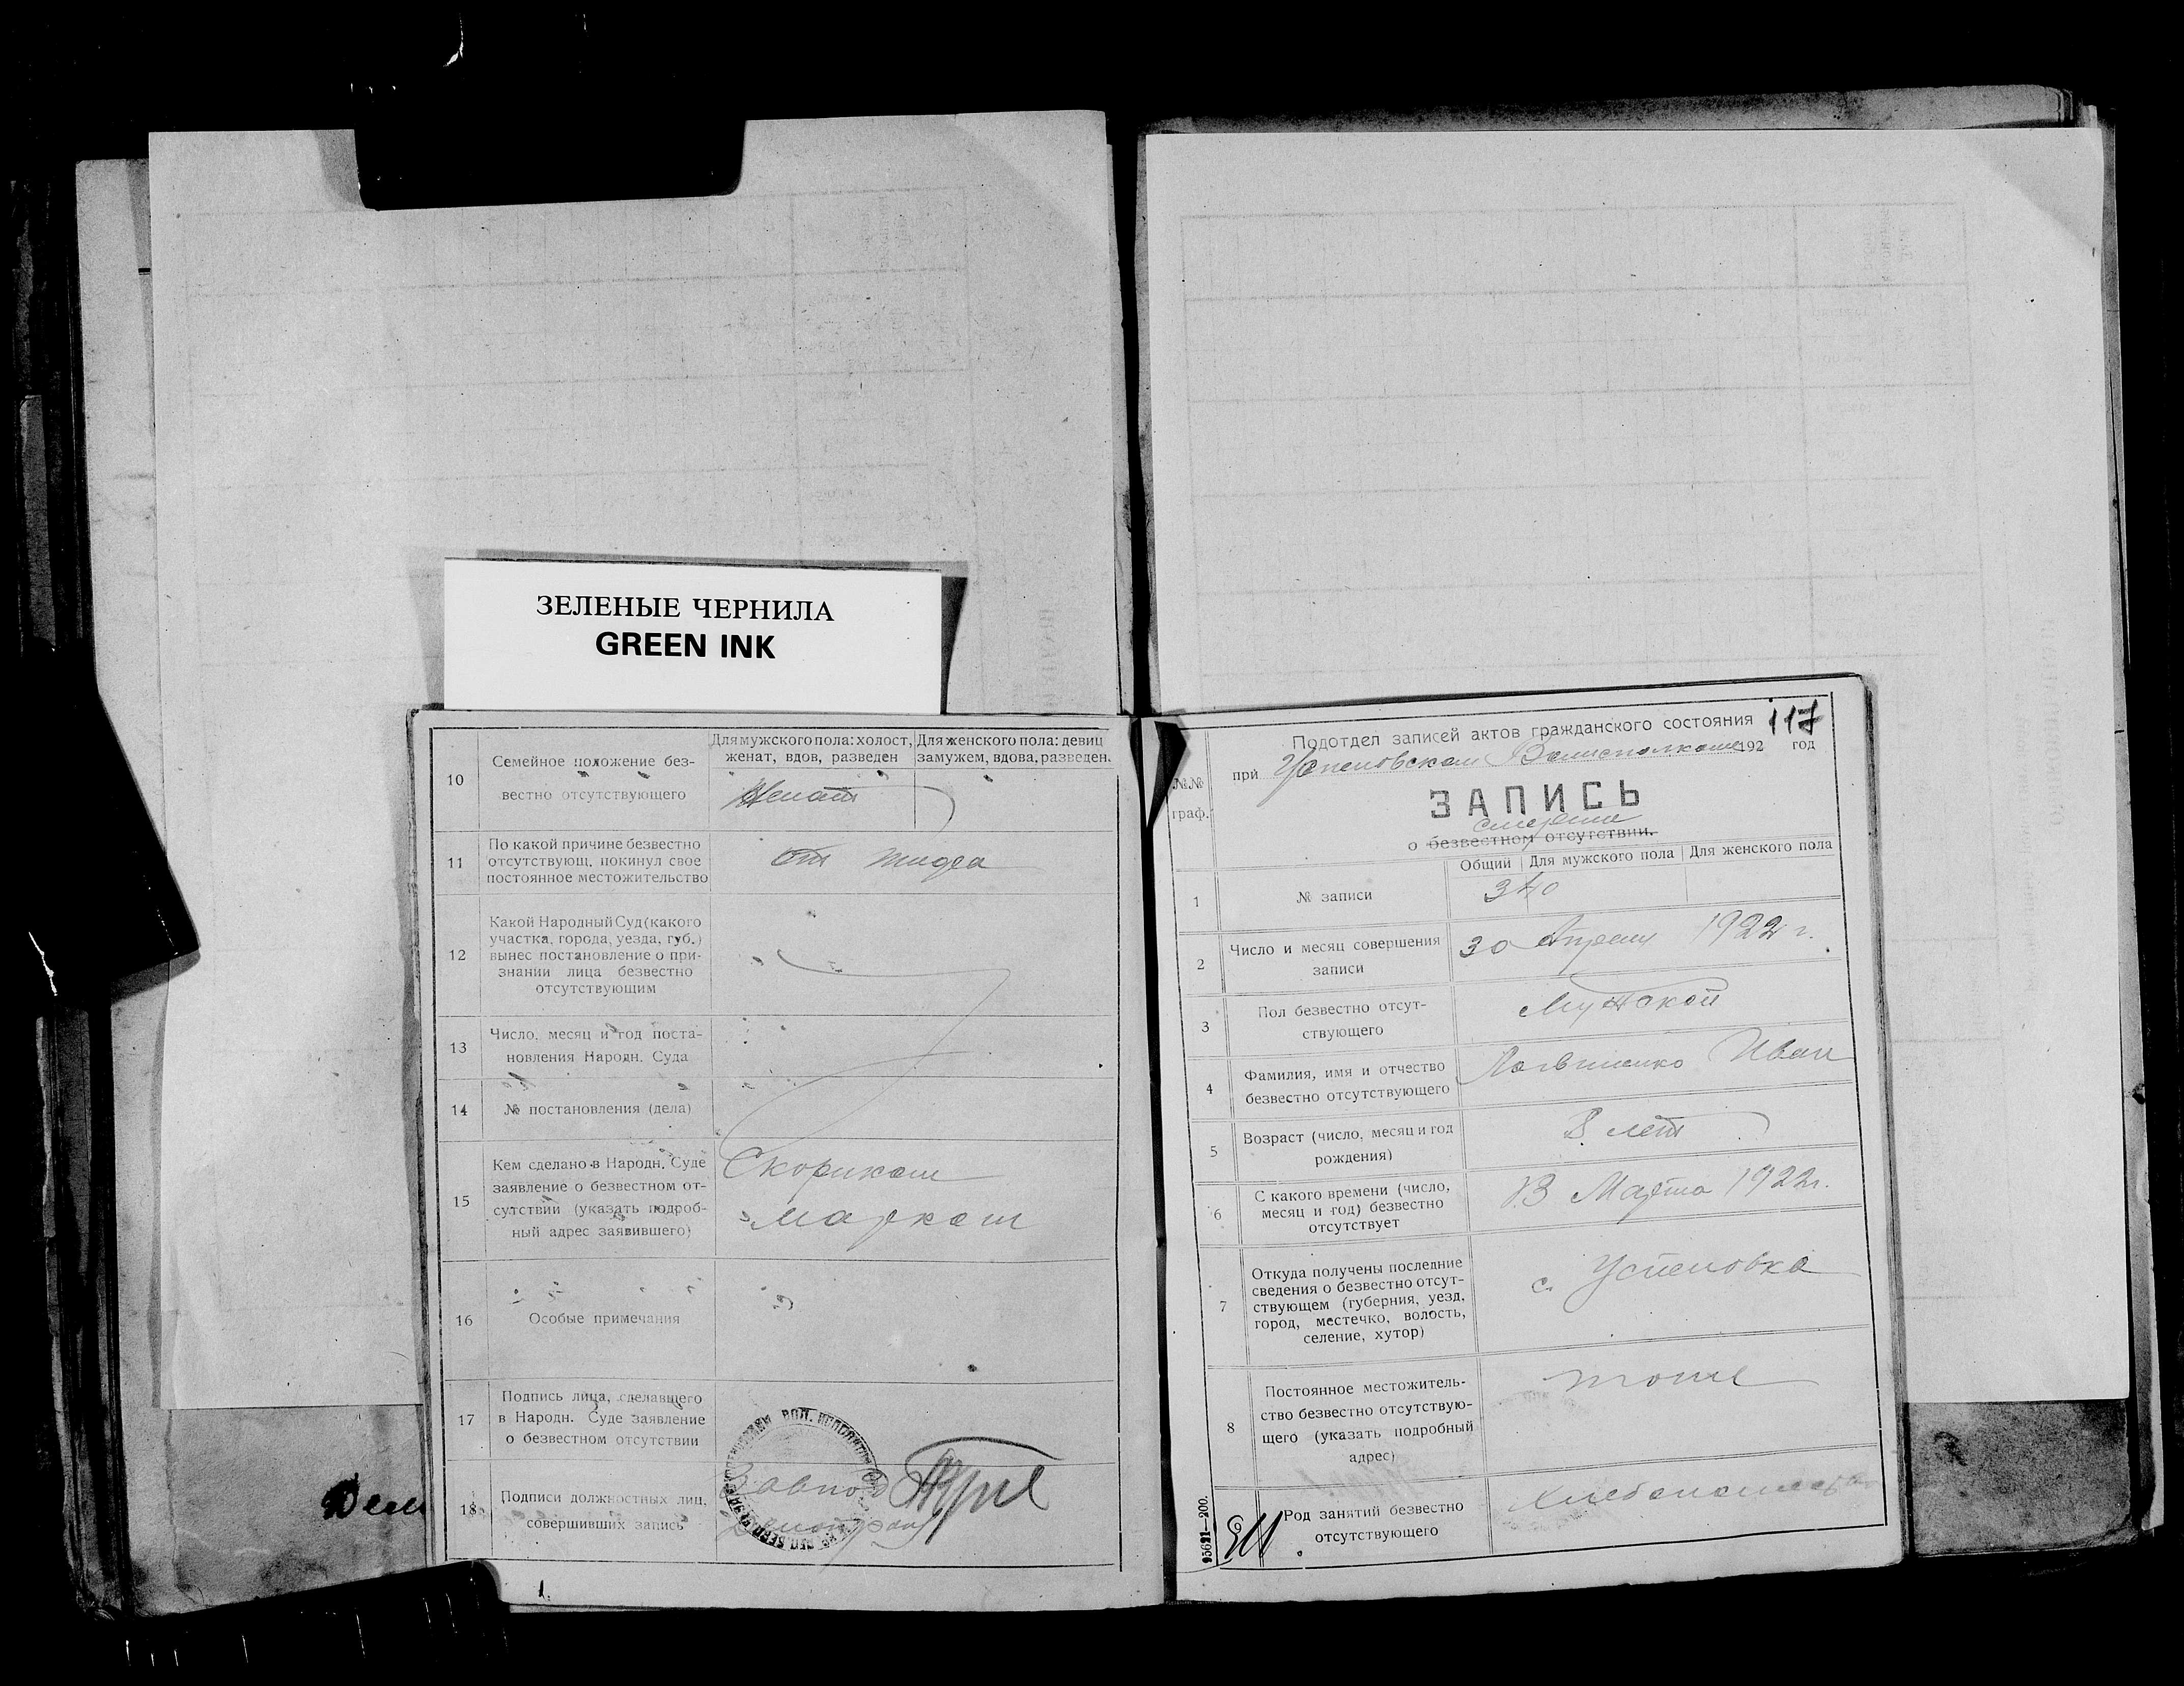 ЗЕЛЕНЫЕ ЧЕРНИЛА
GREEN INK
10
Семейное положение без-
вестно отсутствующего
Для мужского пола: холост,
женат, вдов, разведен
Для женского пола: девиц
замужем, вдова, разведен.
Женат
11
По какой причине безвестно
отсутствующ. покинул свое
постоянное местожительство
от тифа
12
Какой Народный Суд (какого
участка, города, уезда, губ.)
вынес постановление о при-
знании лица безвестно
отсутствующим
13
Число, месяц и год поста-
новления Народн. Суда
14
№ постановления (дела)
15
Кем сделано в Народн. Суде
заявление о безвестном от-
сутствии (указать подроб-
ный адрес заявившего)
Скориком
Марком
16
Особые примечания
17
Подпись лица, сделавшего
в Народн. Суде заявление
о безвестном отсутствии
18
Подписи должностных лиц,
совершивших запись
Завпод
117
Подотдел записей актов гражданского состояния
при Успеновском Волисполкоме 192 год
№№
граф.
ЗАПИСЬ
смерти
о безвестном отсутствии.
Общий Для мужского пола Для женского пола
1
№ записи
340
2
Число и месяц совершения
записи
30 Апреля 1922 г.
3
Пол безвестно отсут-
ствующего
Мужской
4
Фамилия, имя и отчество
безвестно отсутствующего
Логвиненко Иван
5
Возраст (число, месяц и год
рождения)
8 лет
6
С какого времени (число,
месяц и год) безвестно
отсутствует
13 Марта 1922 г.
7
Откуда получены последние
сведения о безвестно отсут-
ствующем (губерния, уезд,
город, местечко, волость,
селение, хутор)
с. Успеновка
8
Постоянное местожитель-
ство безвестно отсутствую-
щего (указать подробный
адрес)
тоже
9
Род занятий безвестно
отсутствующего
Хлебопашество
95621—200.